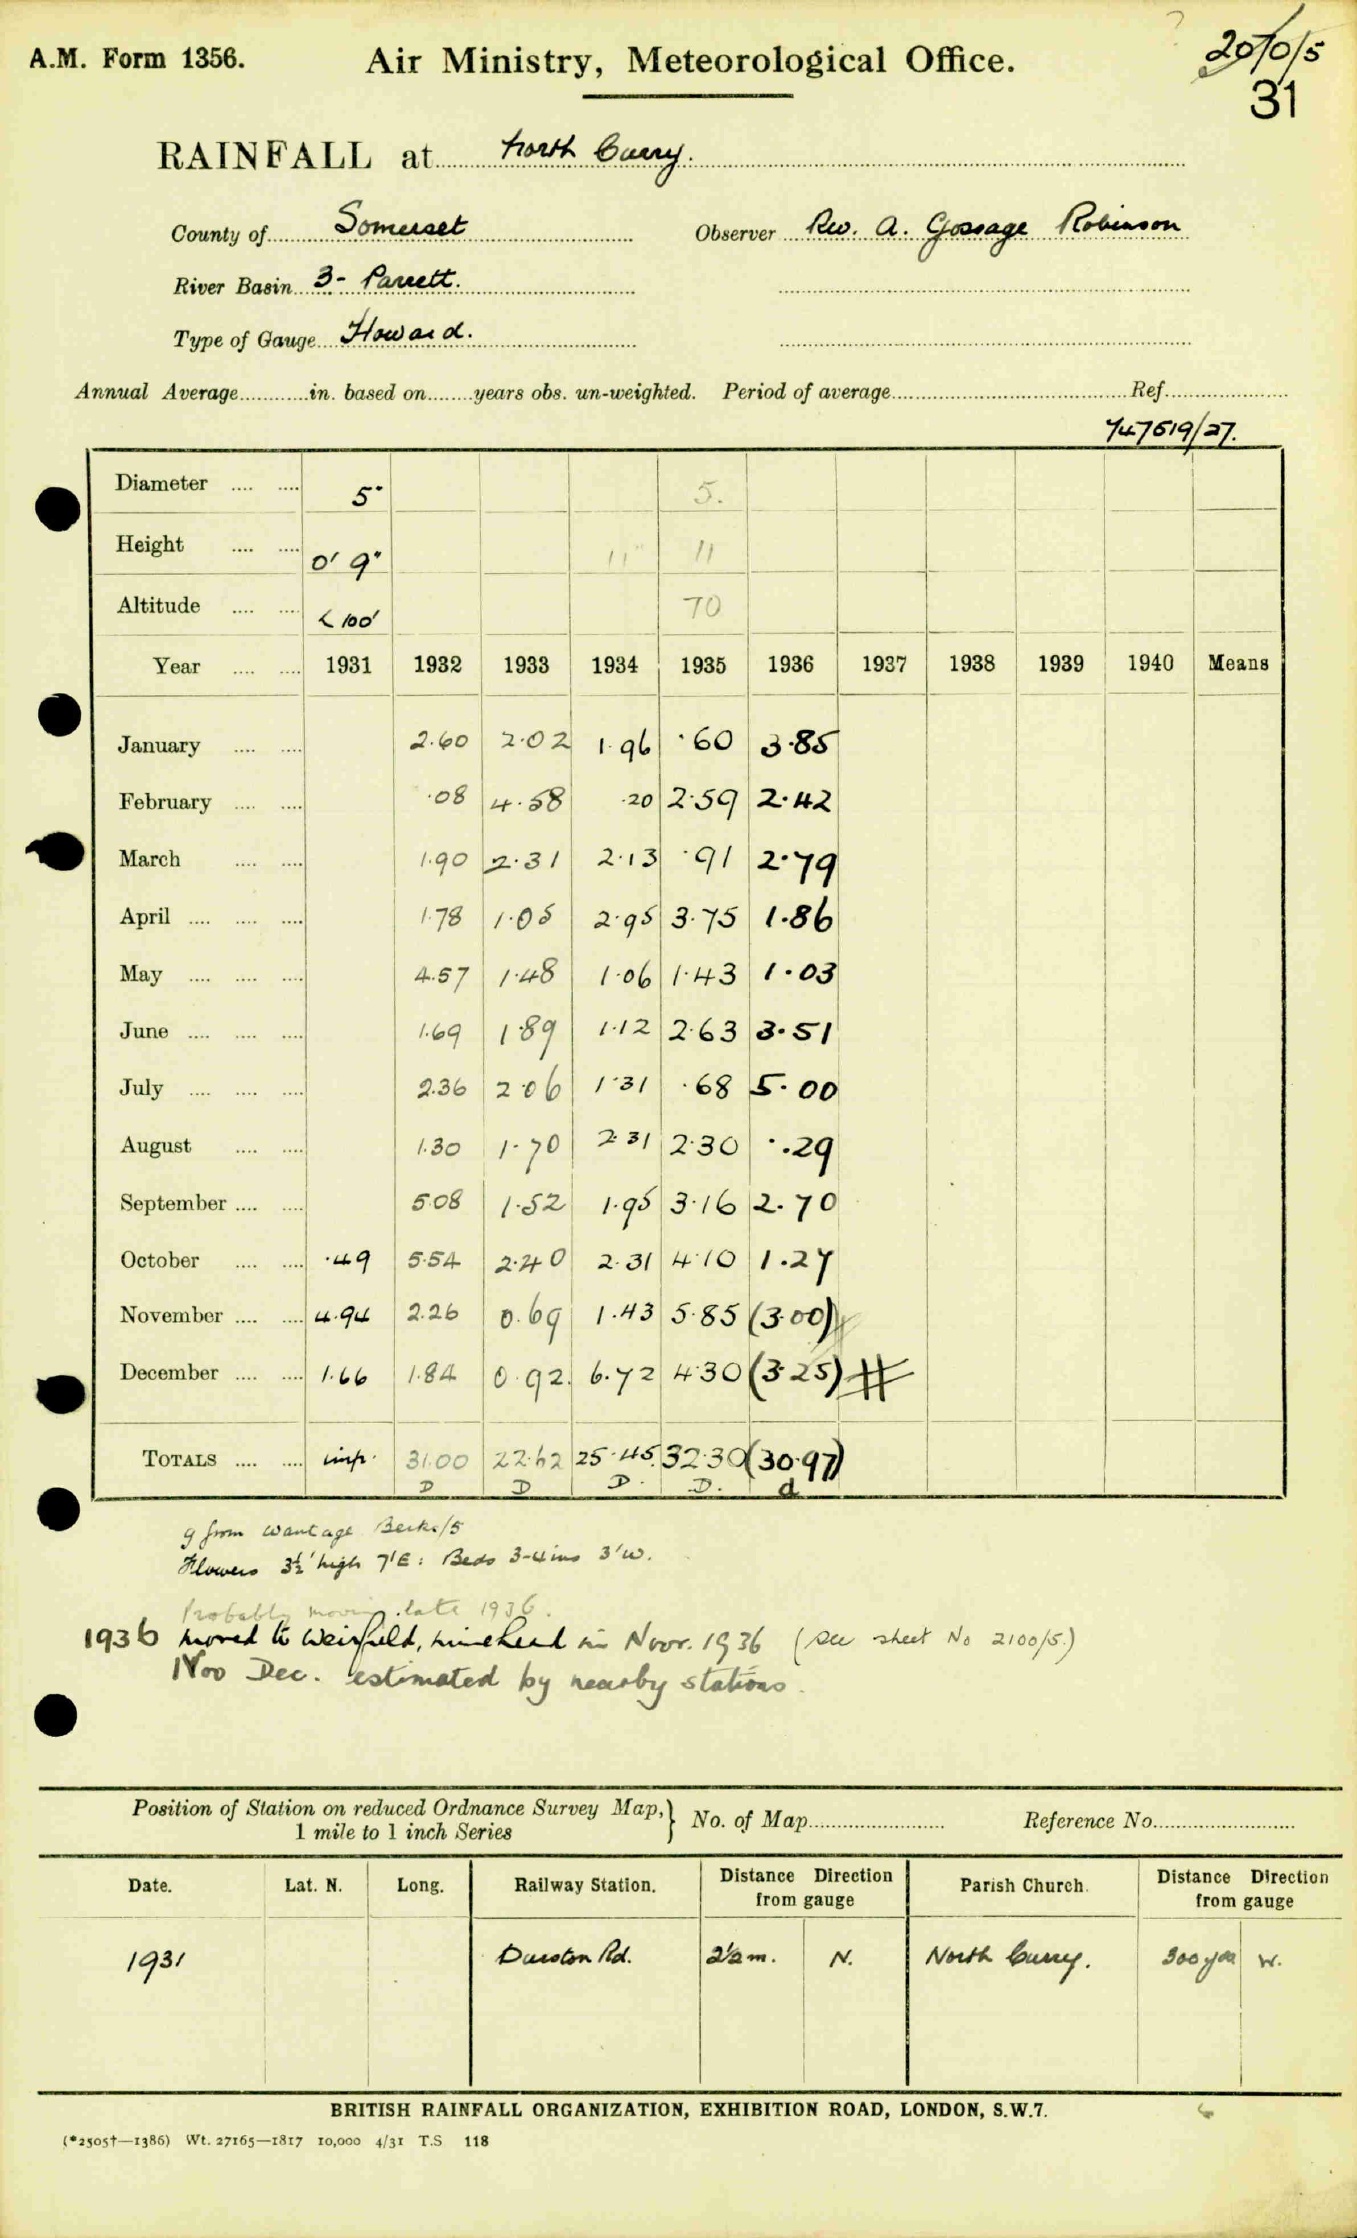 A.M. Form 1356. Air Ministry, Meteorological Office. 2070/5
31
RAINFALL at North Curry.
County of Somerset Observer Rev. A. Gossage Robinson
River Basin 3- Parrett.
Type of Gauge Howard.
Annual Average............in. based on........years obs. un-weighted. Period of average............ Ref............
747619/27.
Diameter .... .... 5" 5.
Height .... .... 0' 9" 11" 11
Altitude .... .... < 100' 70
Year .... .... 1931 1932 1933 1934 1935 1936 1937 1938 1939 1940 Means
January .... .... 2.60 2.02 1.96 .60 3.85
February .... .... .08 4.58 .20 2.59 2.42
March .... .... 1.90 2.31 2.13 .91 2.79
April .... .... .... 1.78 1.05 2.95 3.75 1.86
May .... .... .... 4.57 1.48 1.06 1.43 1.03
June .... .... .... 1.69 1.89 1.12 2.63 3.51
July .... .... .... 2.36 2.06 1.31 .68 5.00
August .... .... 1.30 1.70 2.31 2.30 .29
September .... .... 5.08 1.52 1.95 3.16 2.70
October .... .... .49 5.54 2.40 2.31 4.10 1.27
November .... .... 4.94 2.26 0.69 1.43 5.85 (3.00)
December .... .... 1.66 1.84 0.92 6.72 4.30 (3.25) #
TOTALS .... .... imp. 31.00 22.62 25.45 32.30 (30.97)
D D D. D. d
g from Wantage Berks/5
Flowers 3½' high 7'E: Beds 3-4 ins 3'W.
Probably moving late 1936.
1936 moved to Weirfield, Minehead in Novr. 1936 (see sheet No 2100/5.)
Nov Dec. estimated by nearby stations.
Position of Station on reduced Ordnance Survey Map, 1 mile to 1 inch Series } No. of Map............ Reference No............
Date. Lat. N. Long. Railway Station. Distance Direction from gauge Parish Church. Distance Direction from gauge
1931 Durston Rd. 2½ m. N. North Curry. 300 yds W.
BRITISH RAINFALL ORGANIZATION, EXHIBITION ROAD, LONDON, S.W.7.
(*2505†—1386) Wt. 27165—1817 10,000 4/31 T.S 118